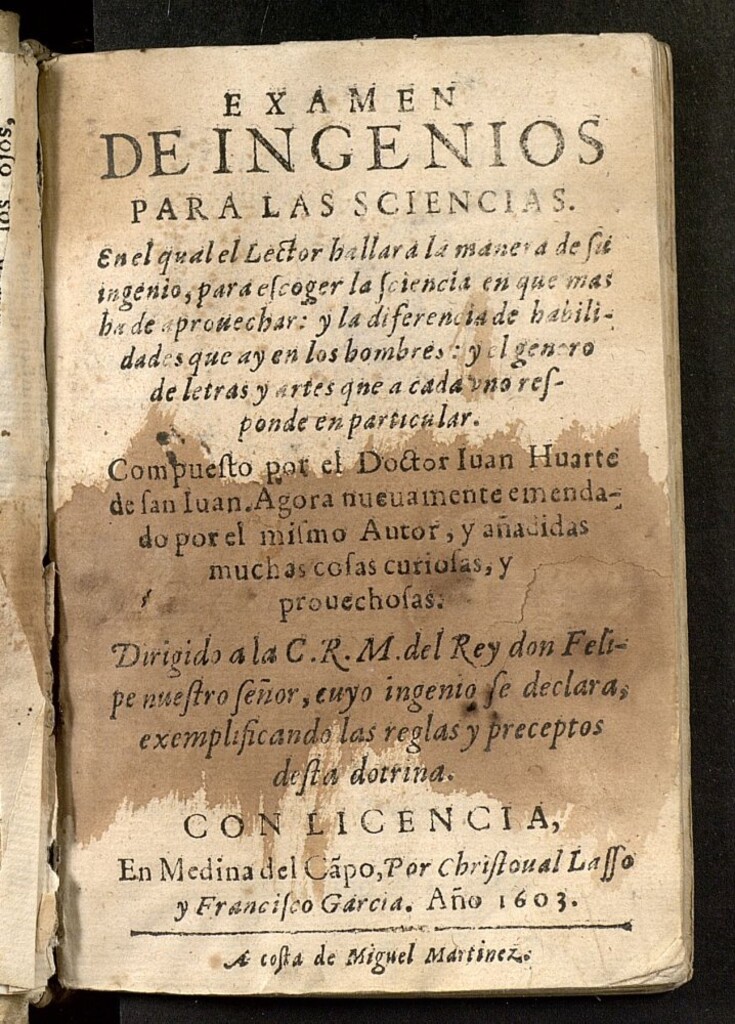 EXAMEN
DE INGENIOS
PARA LAS SCIENCIAS.
En el qual el Lector hallara la manera de su
ingenio, para eſcoger la ſciencia en que mas
ha de aprouechar: y la diferencia de habili-
dades que ay en los hombres: y el genero
de letras y artes que a cada vno reſ-
ponde en particular.
Compueſto por el Doctor Iuan Huarte
de ſan Iuan. Agora nueuamente emenda-
do por el miſmo Autor, y añadidas
muchas coſas curioſas, y
prouechoſas.
Dirigido a la C. R. M. del Rey don Feli-
pe nueſtro ſeñor, cuyo ingenio ſe declara,
exemplificando las reglas y preceptos
deſta dotrina.
CON LICENCIA,
En Medina del Cãpo, Por Chriſtoual Laſſo
y Franciſco Garcia. Año 1603.
A coſta de Miguel Martinez.
los ojos,